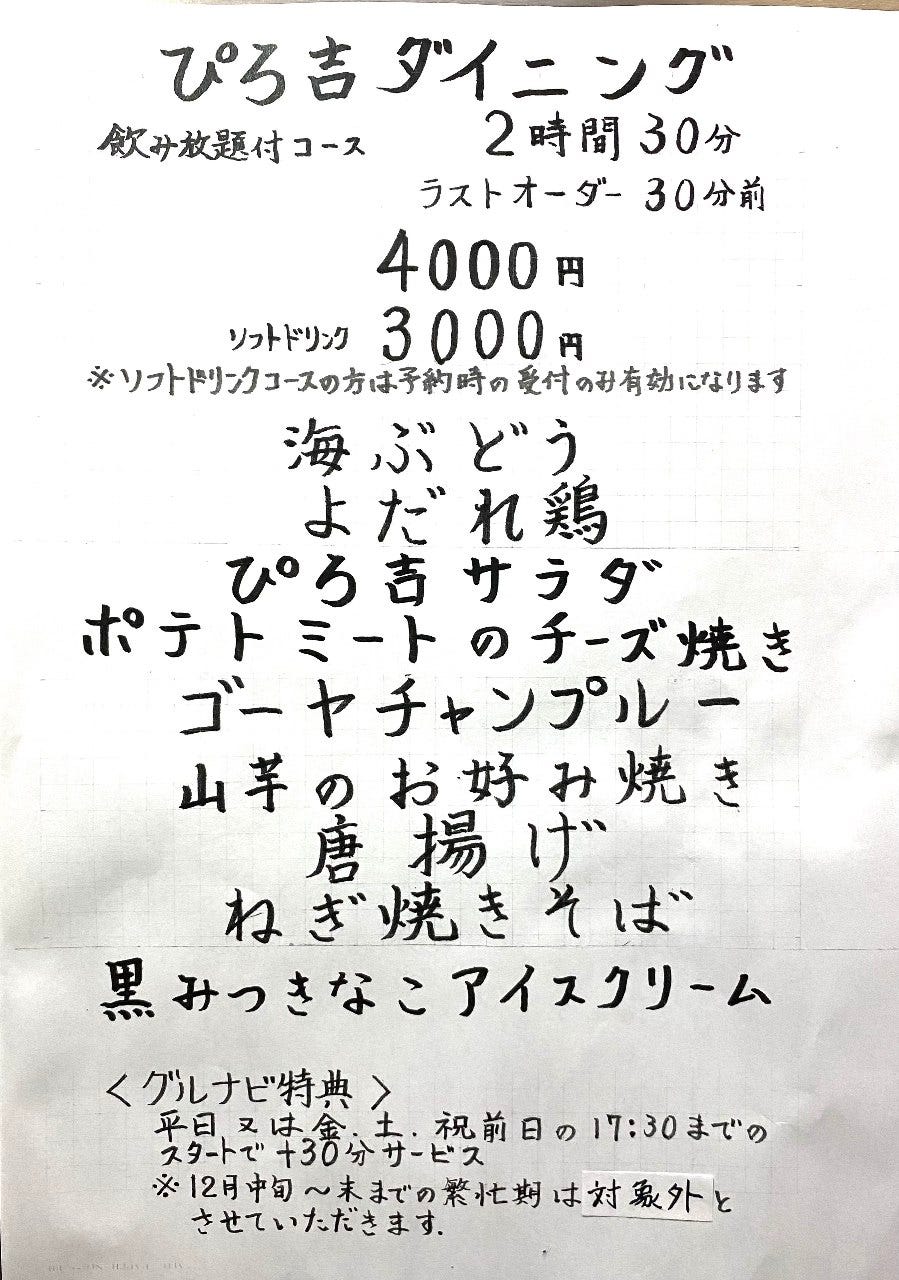 ぴろ吉ダイニング
飲み放題付コース 2時間30分
ラストオーダー 30分前
4000円
ソフトドリンク 3000円
※ソフトドリンクコースの方は予約時の受付のみ有効になります
海ぶどう
よだれ鶏
ぴろ吉サラダ
ポテトミートのチーズ焼き
ゴーヤチャンプルー
山芋のお好み焼き
唐揚げ
ねぎ焼きそば
黒みつきなこアイスクリーム
<グルナビ特典>
平日又は金.土.祝前日の17:30までの
スタートで+30分サービス
※12月中旬~末までの繁忙期は対象外と
させていただきます.